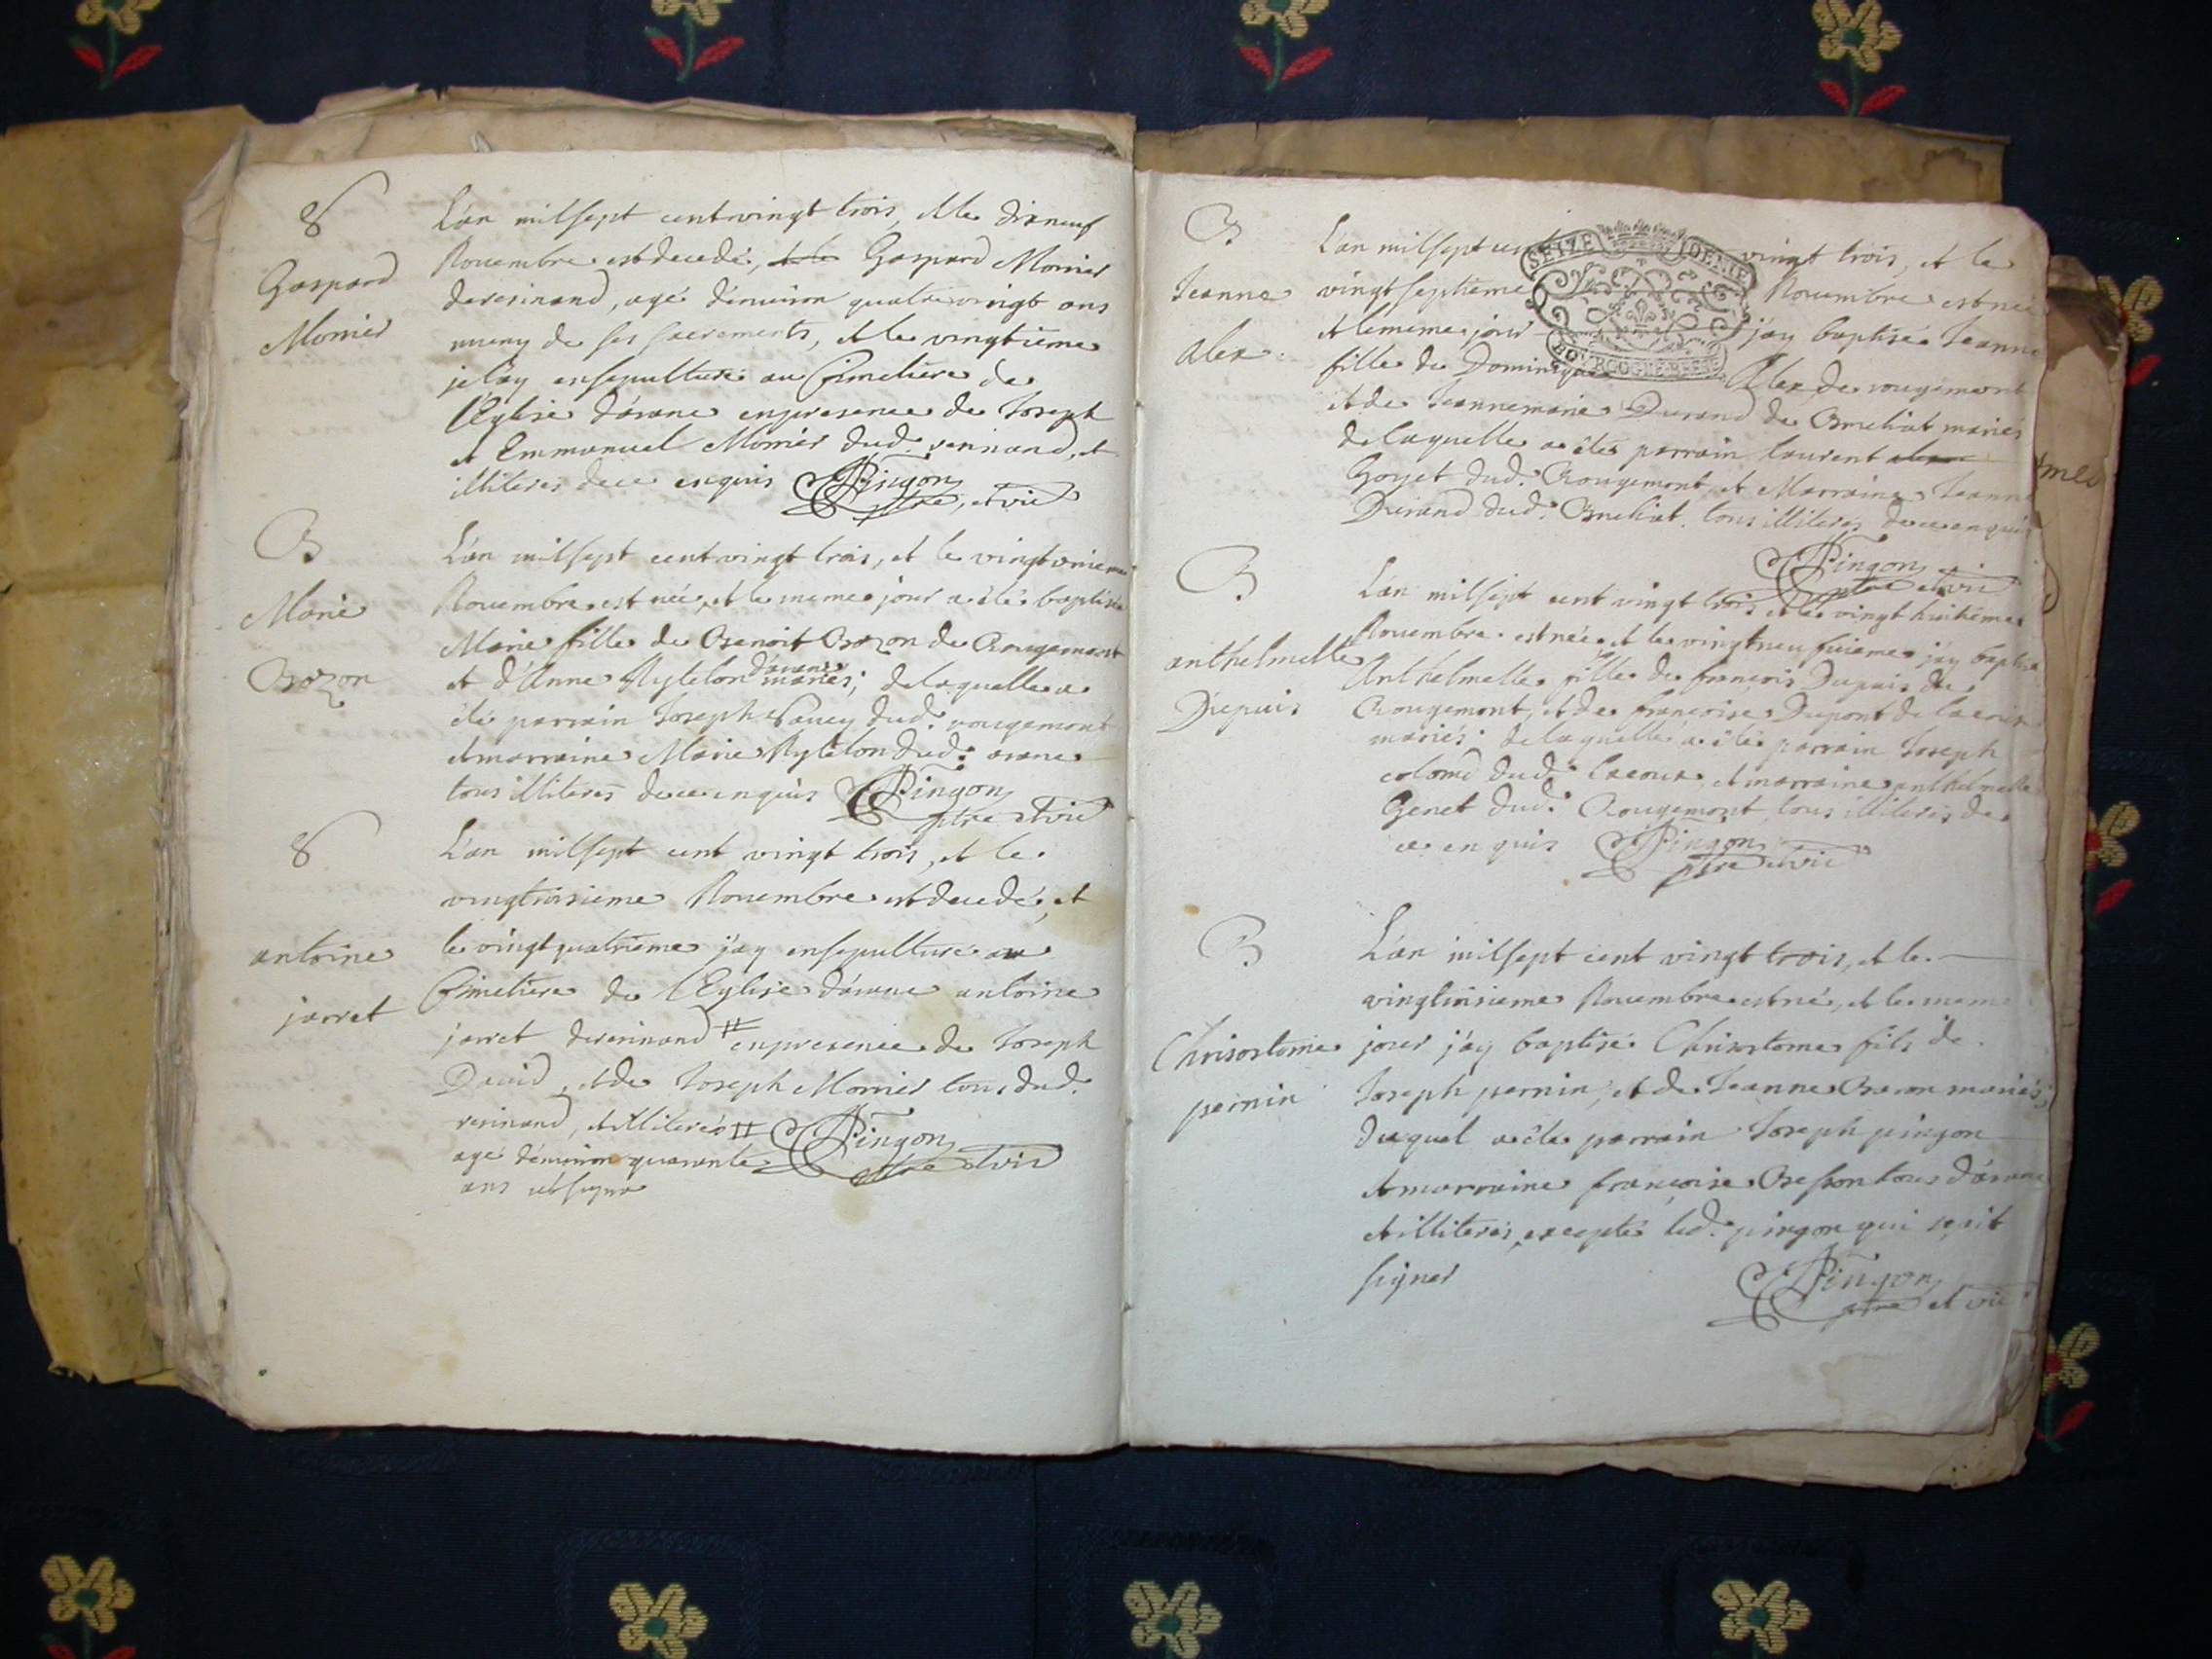 8
Gaspard
Monier
L'an mil sept cent vingt trois, et le dixneuf
Novembre est decedé, Gaspard Monier
de resinand, agé d'environ quatre vingt ans
muny de ses sacrements, et le vingtieme
je l'ay ensepulturé au Cimetiere de
l'Eglise d'arane en presence de Joseph
et Emmanuel Monier dud. resinand, et
illiteres de ce enquis Pingon
ptre, et vic
B
Marie
Bozon
L'an mil sept cent vingt trois, et le vingt unieme
Novembre est née, et le meme jour a été baptisée
Marie fille de Benoit Bozon de Rougemont
d'arane
et d'Anne Mytelon mariés; de laquelle a
été parrain Joseph Savey dud. rougemont
et marraine Marie Mytelon dud. arane
tous illiteres de ce enquis Pingon
ptre et vic
8
antoine
jarret
L'an mil sept cent vingt trois, et le
vingt troisieme Novembre est decedé, et
le vingt quatrieme j'ay ensepulturé au
Cimetiere de l'Eglise d'arane antoine
jarret de resinand # en presence de Joseph
David, et de Joseph Monier tous dud.
resinand, et illiterés # Pingon
agé d'environ quarante ptre et vic
ans
B
Jeanne
alex
L'an mil sept cent vingt trois, et le
SEIZE DENIE
vingt septieme Novembre est née
et le meme jour j'ay baptisé Jeanne
fille de Dominique Alex de rougemont
BOURGOGNE BRESSE
et de Jeanne marie Durand de Breliat mariés
de laquelle a été parrain laurent
Goyet dud. Rougemont, et Marraine Jeanne
Durand dud. Breliat. tous illiteres de ce enquis
Pingon
ptre et vic
B
anthelmette
Dupuis
L'an mil sept cent vingt trois et le vingt huitieme
Novembre est née, et le vingt neufvieme j'ay baptisé
Anthelmette fille de françois Dupuis de
Rougemont, et de françoise Dupont de lacoux
mariés. de laquelle a été parrain Joseph
colomd dud. lacoux, et marraine anthelmette
Genet dud. Rougemont, tous illiteres de
ce enquis Pingon
ptre et vic
B
Chrisostome
pernin
L'an mil sept cent vingt trois, et le
vingt troisieme Novembre est né, et le meme
jour j'ay baptisé Chrisostome fils de
Joseph pernin, et de Jeanne Beron mariés;
duquel a été parrain Joseph pingon
et marraine françoise Besson tous d'arane
et illiteres, excepté led. pingon qui sçait
signer Pingon
ptre et vic